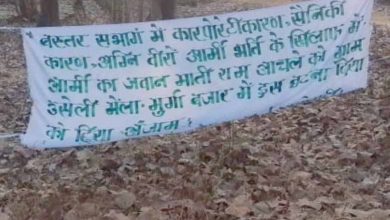 बस्तर सभागं में कारपोरेटीकारण, सौनिकी
कारण, अग्नि वीरो आर्मी भर्ति के खिलाफ में
आर्मी का जवान मोती राम आचले को ग्राम
उसेली मेला-मुर्गा बजार में इस घटना दिया
को दिया अंजाम